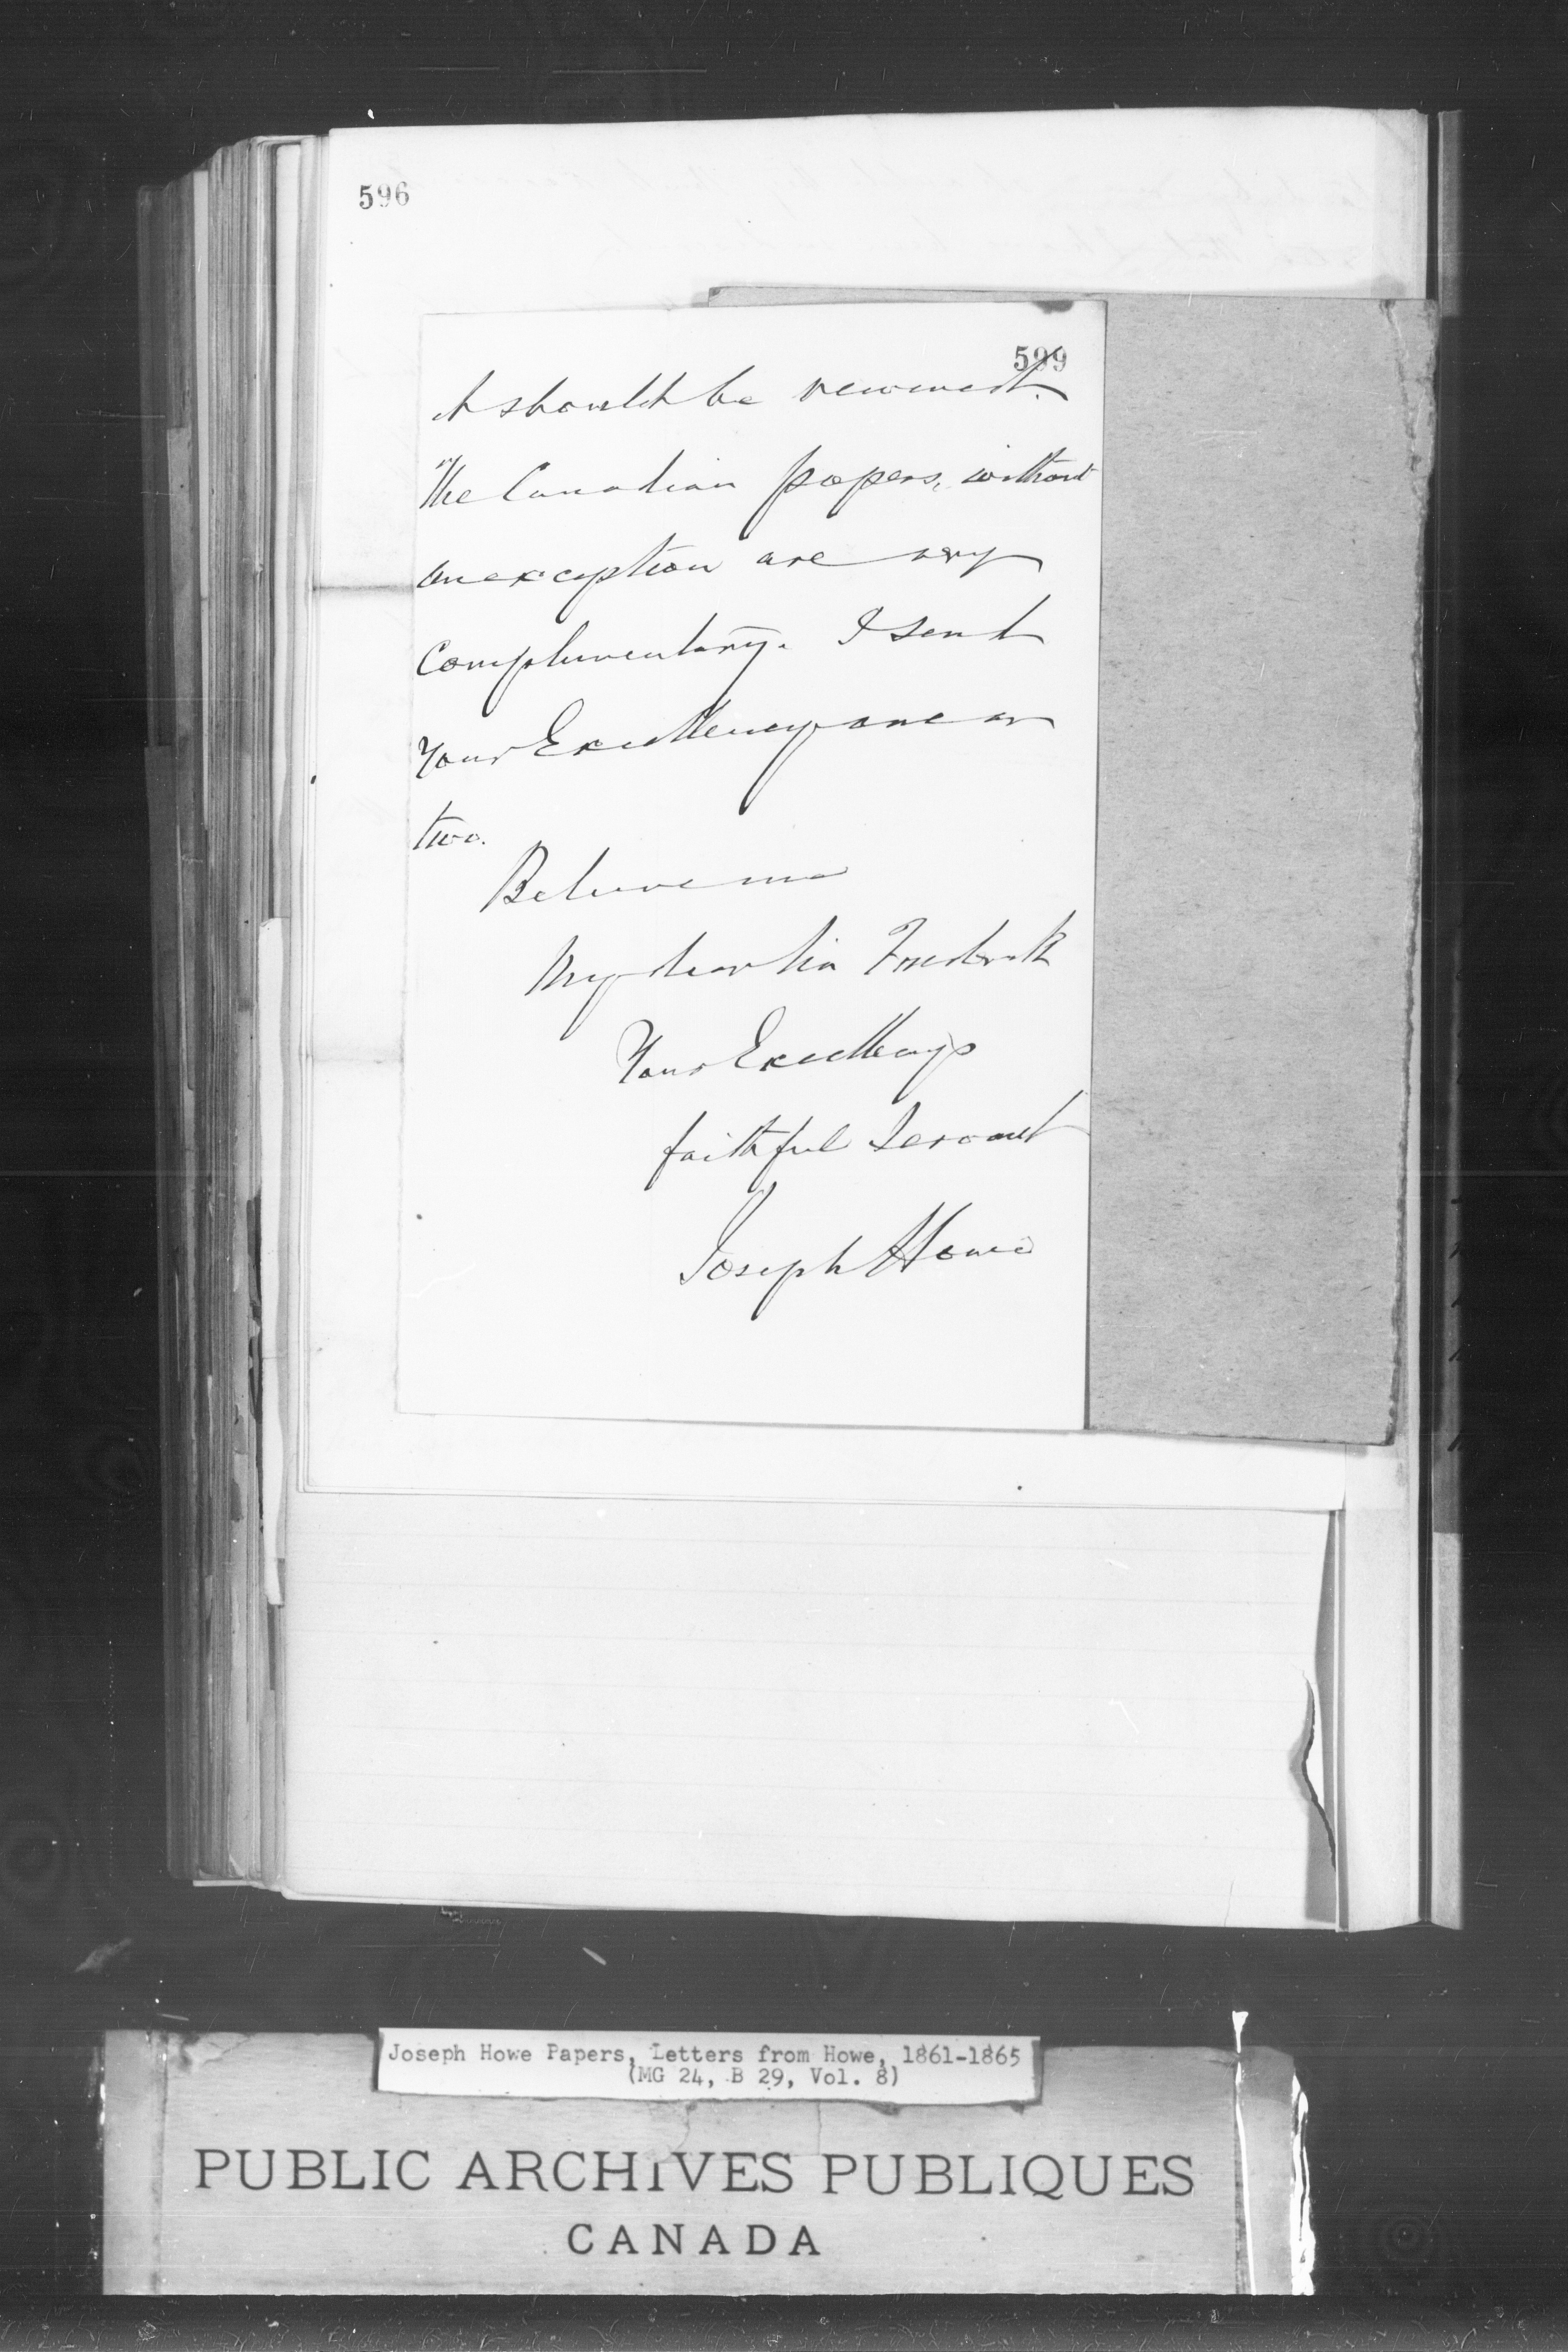 596
599
it should be renewed.
The Canadian papers, without
an exception are very
complimentary. I sent
Your Excellency one or
two.
Believe me
My dear Sir Frederick
Your Excellency's
faithful Servant
Joseph Howe
Joseph Howe Papers, Letters from Howe, 1861-1865
(MG 24, B 29, Vol. 8)
PUBLIC ARCHIVES PUBLIQUES
CANADA